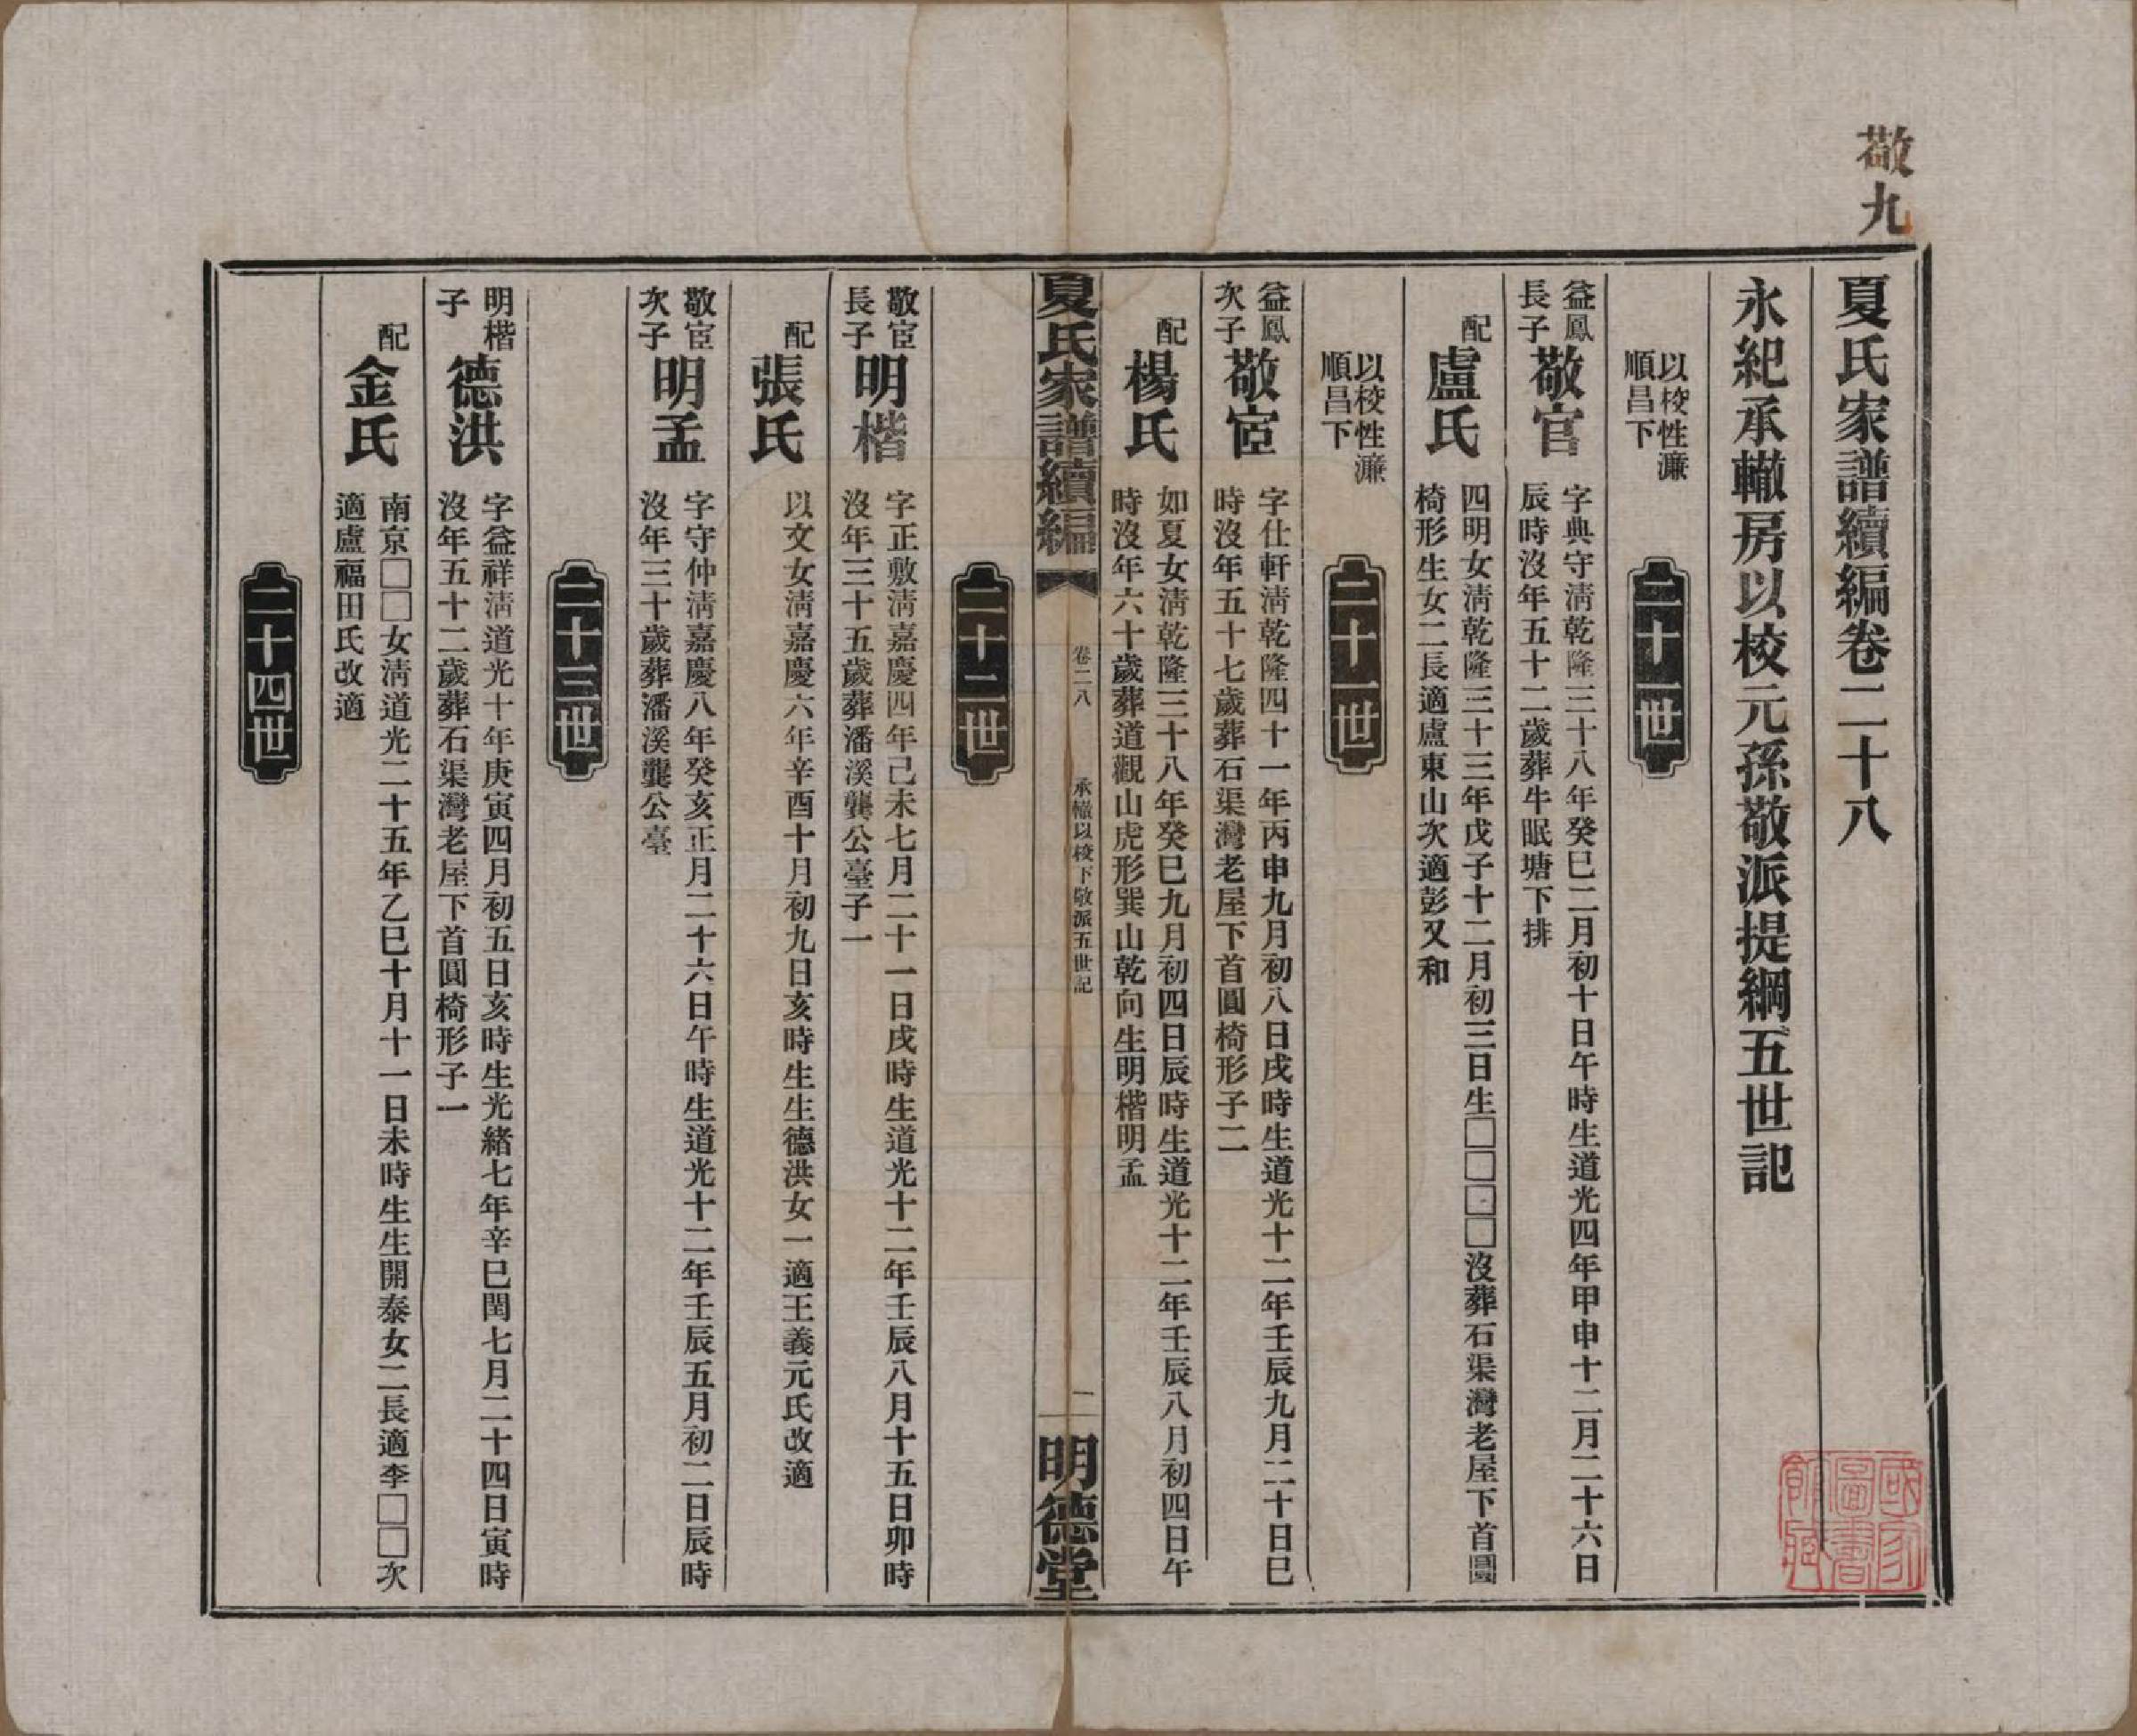 敬九
夏氏家譜續編卷二十八
永紀承轍房以校元孫敬派提綱五世記
以校性濂
順昌下
二十一世
益鳳
長子
敬官
字典守淸乾隆三十八年癸巳二月初十日午時生道光四年甲申十二月二十六日
辰時沒年五十二歲葬牛眠塘下排
配
盧氏
四明女淸乾隆三十三年戊子十二月初三日生□□□□沒葬石渠灣老屋下首圓
椅形生女二長適盧東山次適彭又和
以校性濂
順昌下
二十一世
益鳳
次子
敬宧
字仕軒淸乾隆四十一年丙申九月初八日戌時生道光十二年壬辰九月二十日巳
時沒年五十七歲葬石渠灣老屋下首圓椅形子二
配
楊氏
如夏女淸乾隆三十八年癸巳九月初四日辰時生道光十二年壬辰八月初四日午
時沒年六十歲葬道觀山虎形巽山乾向生明楷明孟
夏氏家譜續編
卷二八
承轍以校下敬派五世記
一
明德堂
二十二世
敬宧
長子
明楷
字正敷淸嘉慶四年己未七月二十一日戌時生道光十二年壬辰八月十五日卯時
沒年三十五歲葬潘溪龔公臺子一
配
張氏
以文女淸嘉慶六年辛酉十月初九日亥時生生德洪女一適王義元氏改適
敬宧
次子
明孟
字守仲淸嘉慶八年癸亥正月二十六日午時生道光十二年壬辰五月初二日辰時
沒年三十歲葬潘溪龔公臺
二十三世
明楷
子
德洪
字益祥淸道光十年庚寅四月初五日亥時生光緒七年辛巳閏七月二十四日寅時
沒年五十二歲葬石渠灣老屋下首圓椅形子一
配
金氏
南京□□女淸道光二十五年乙巳十月十一日未時生生開泰女二長適李□□次
適盧福田氏改適
二十四世
國家
圖書
館藏